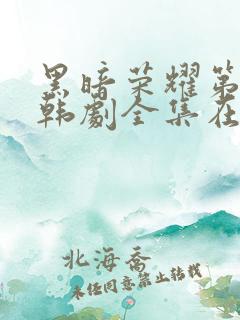 黑暗荣耀第
韩剧全集在
北海乔
未经同意禁止转载